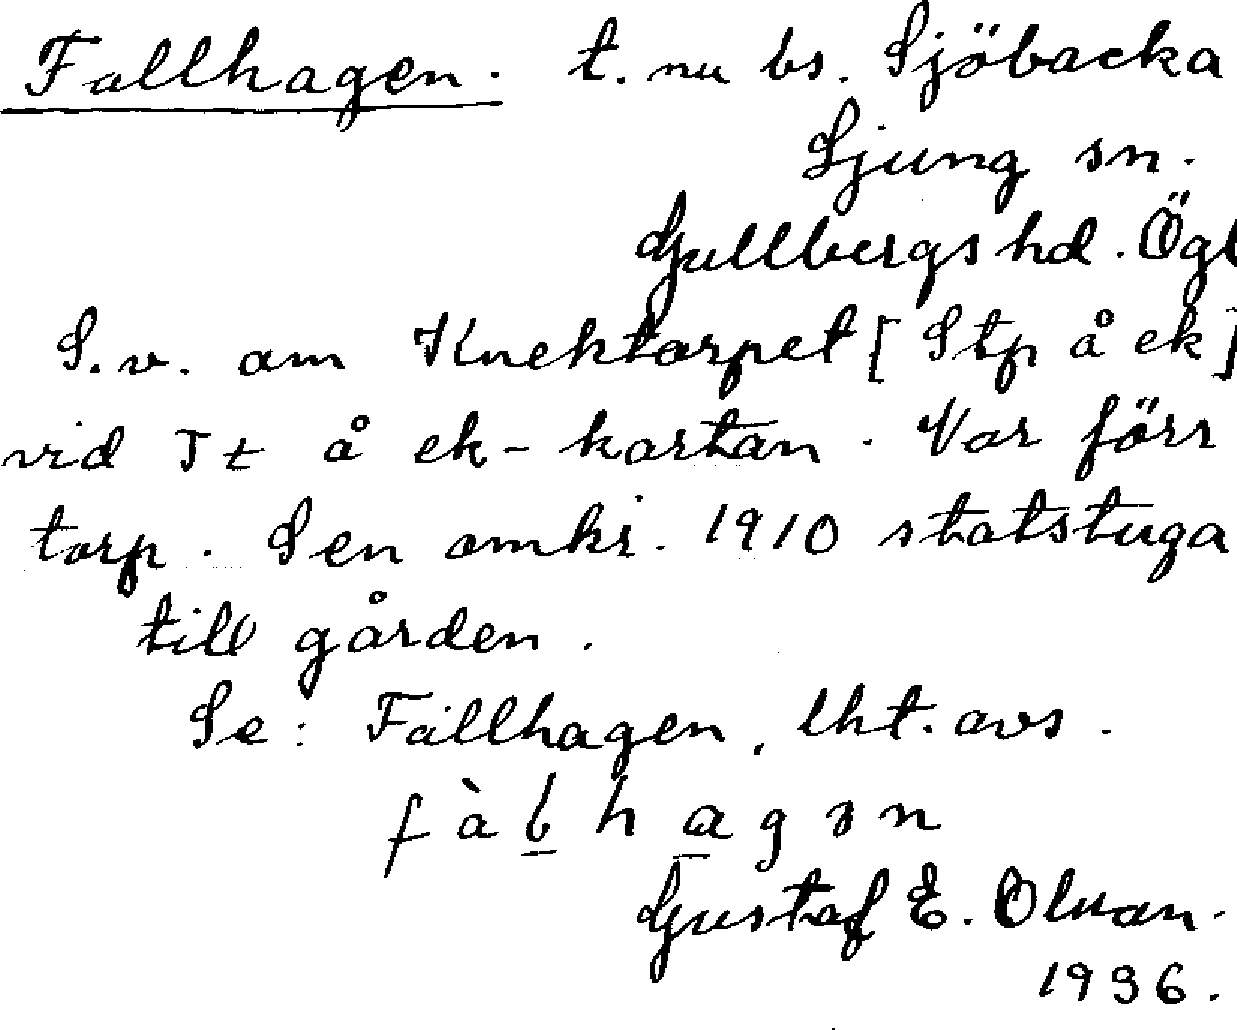 Fallhagen. t. nu bs. Sjöbacka
Ljung sn.
Gullbergs hd. Ögl
S.v. om Knektorpet [Stp å ek]
vid Tt å ek-kartan. Var förr
torp. Sen omkr. 1910 statstuga
till gården.
Se: Fallhagen, lht. avs.
fàḷhagən
Gustaf E. Olman.
1936.